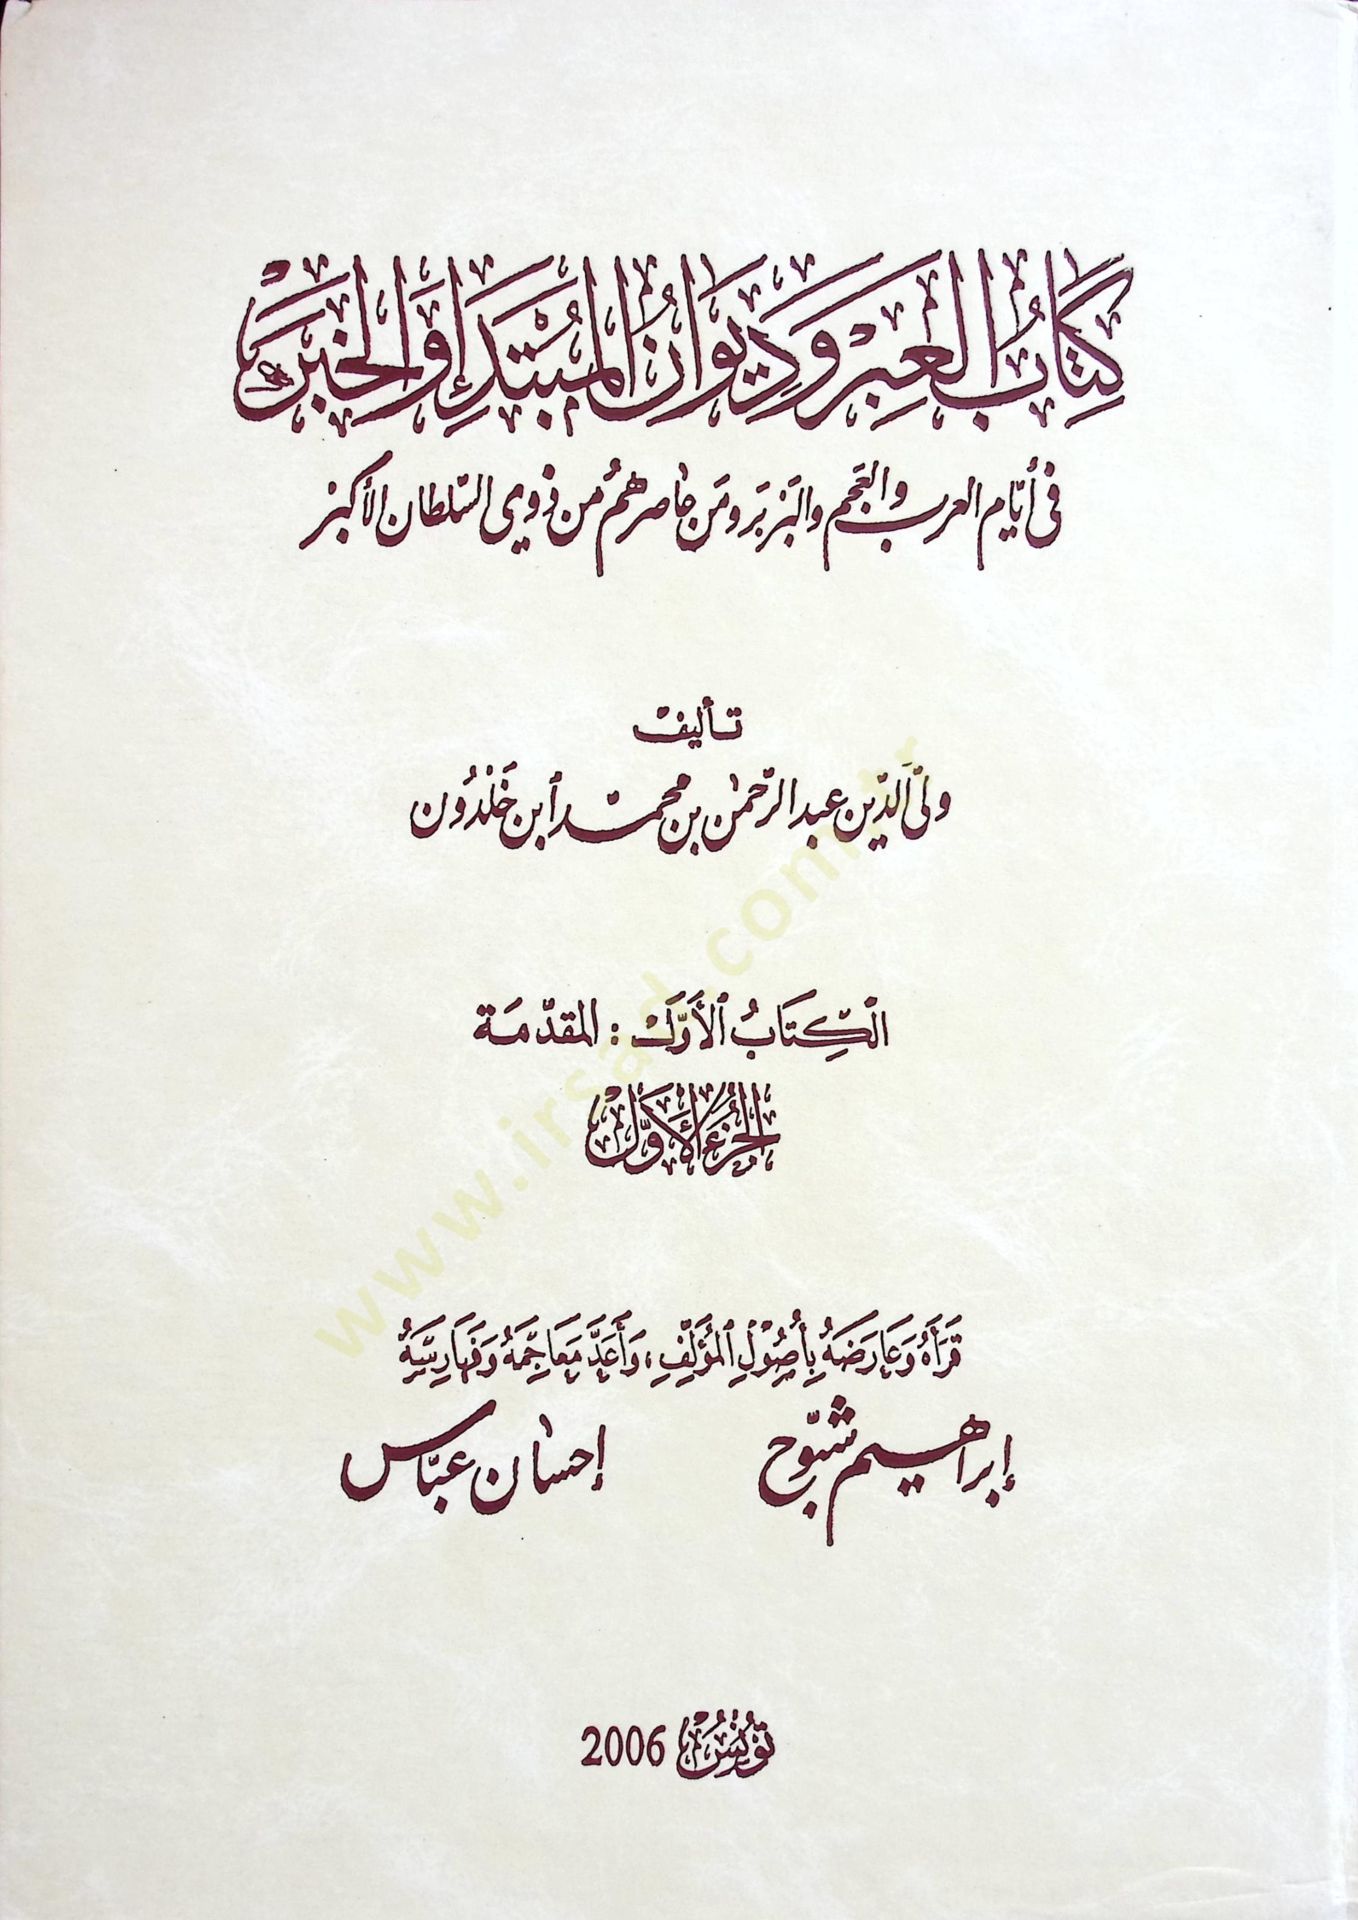 كِتَابُ العِبَر وَدِيوَان المُبْتَدَإ وَالخَبَر
في أيّام العرب والعَجَم والبَرْبَر ومَن عاصرهُم مِن ذوي السّلطان الأكبَر
تأليف
وليّ الدّين عبد الرّحمٰن بن محمّد ٱبن خَلْدُون
الكِتَابُ الأوَّل : المقدّمَة
الجُزءُ الأوَّل
قَرَأهُ وَعَارَضَهُ بِأُصُولِ المُؤَلِّفِ، وَأَعَدَّ مَعَاجِمَهُ وَفَهَارِسَهُ
إبراهيم شبّوح
إحسان عبّاس
تُونس 2006
www.irsad.com.tr